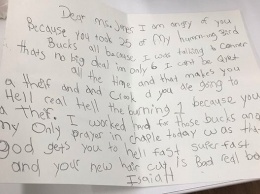 Dear Mis. Jones I am angry of you
Because you took 25 of My humming Bird
Bucks all because I was talking to Conner
thats no big deal im only 8 I cant be Quiet
all the time and that makes you
a theif and and Crook if you are going to
Hell real Hell the burning 1 because you
a Thef. I worked hard for those bucks and
my Only prayer in chaple today was that
god gets you to hell fast super fast
and your new hair cut is Bad real bad
Isaiah